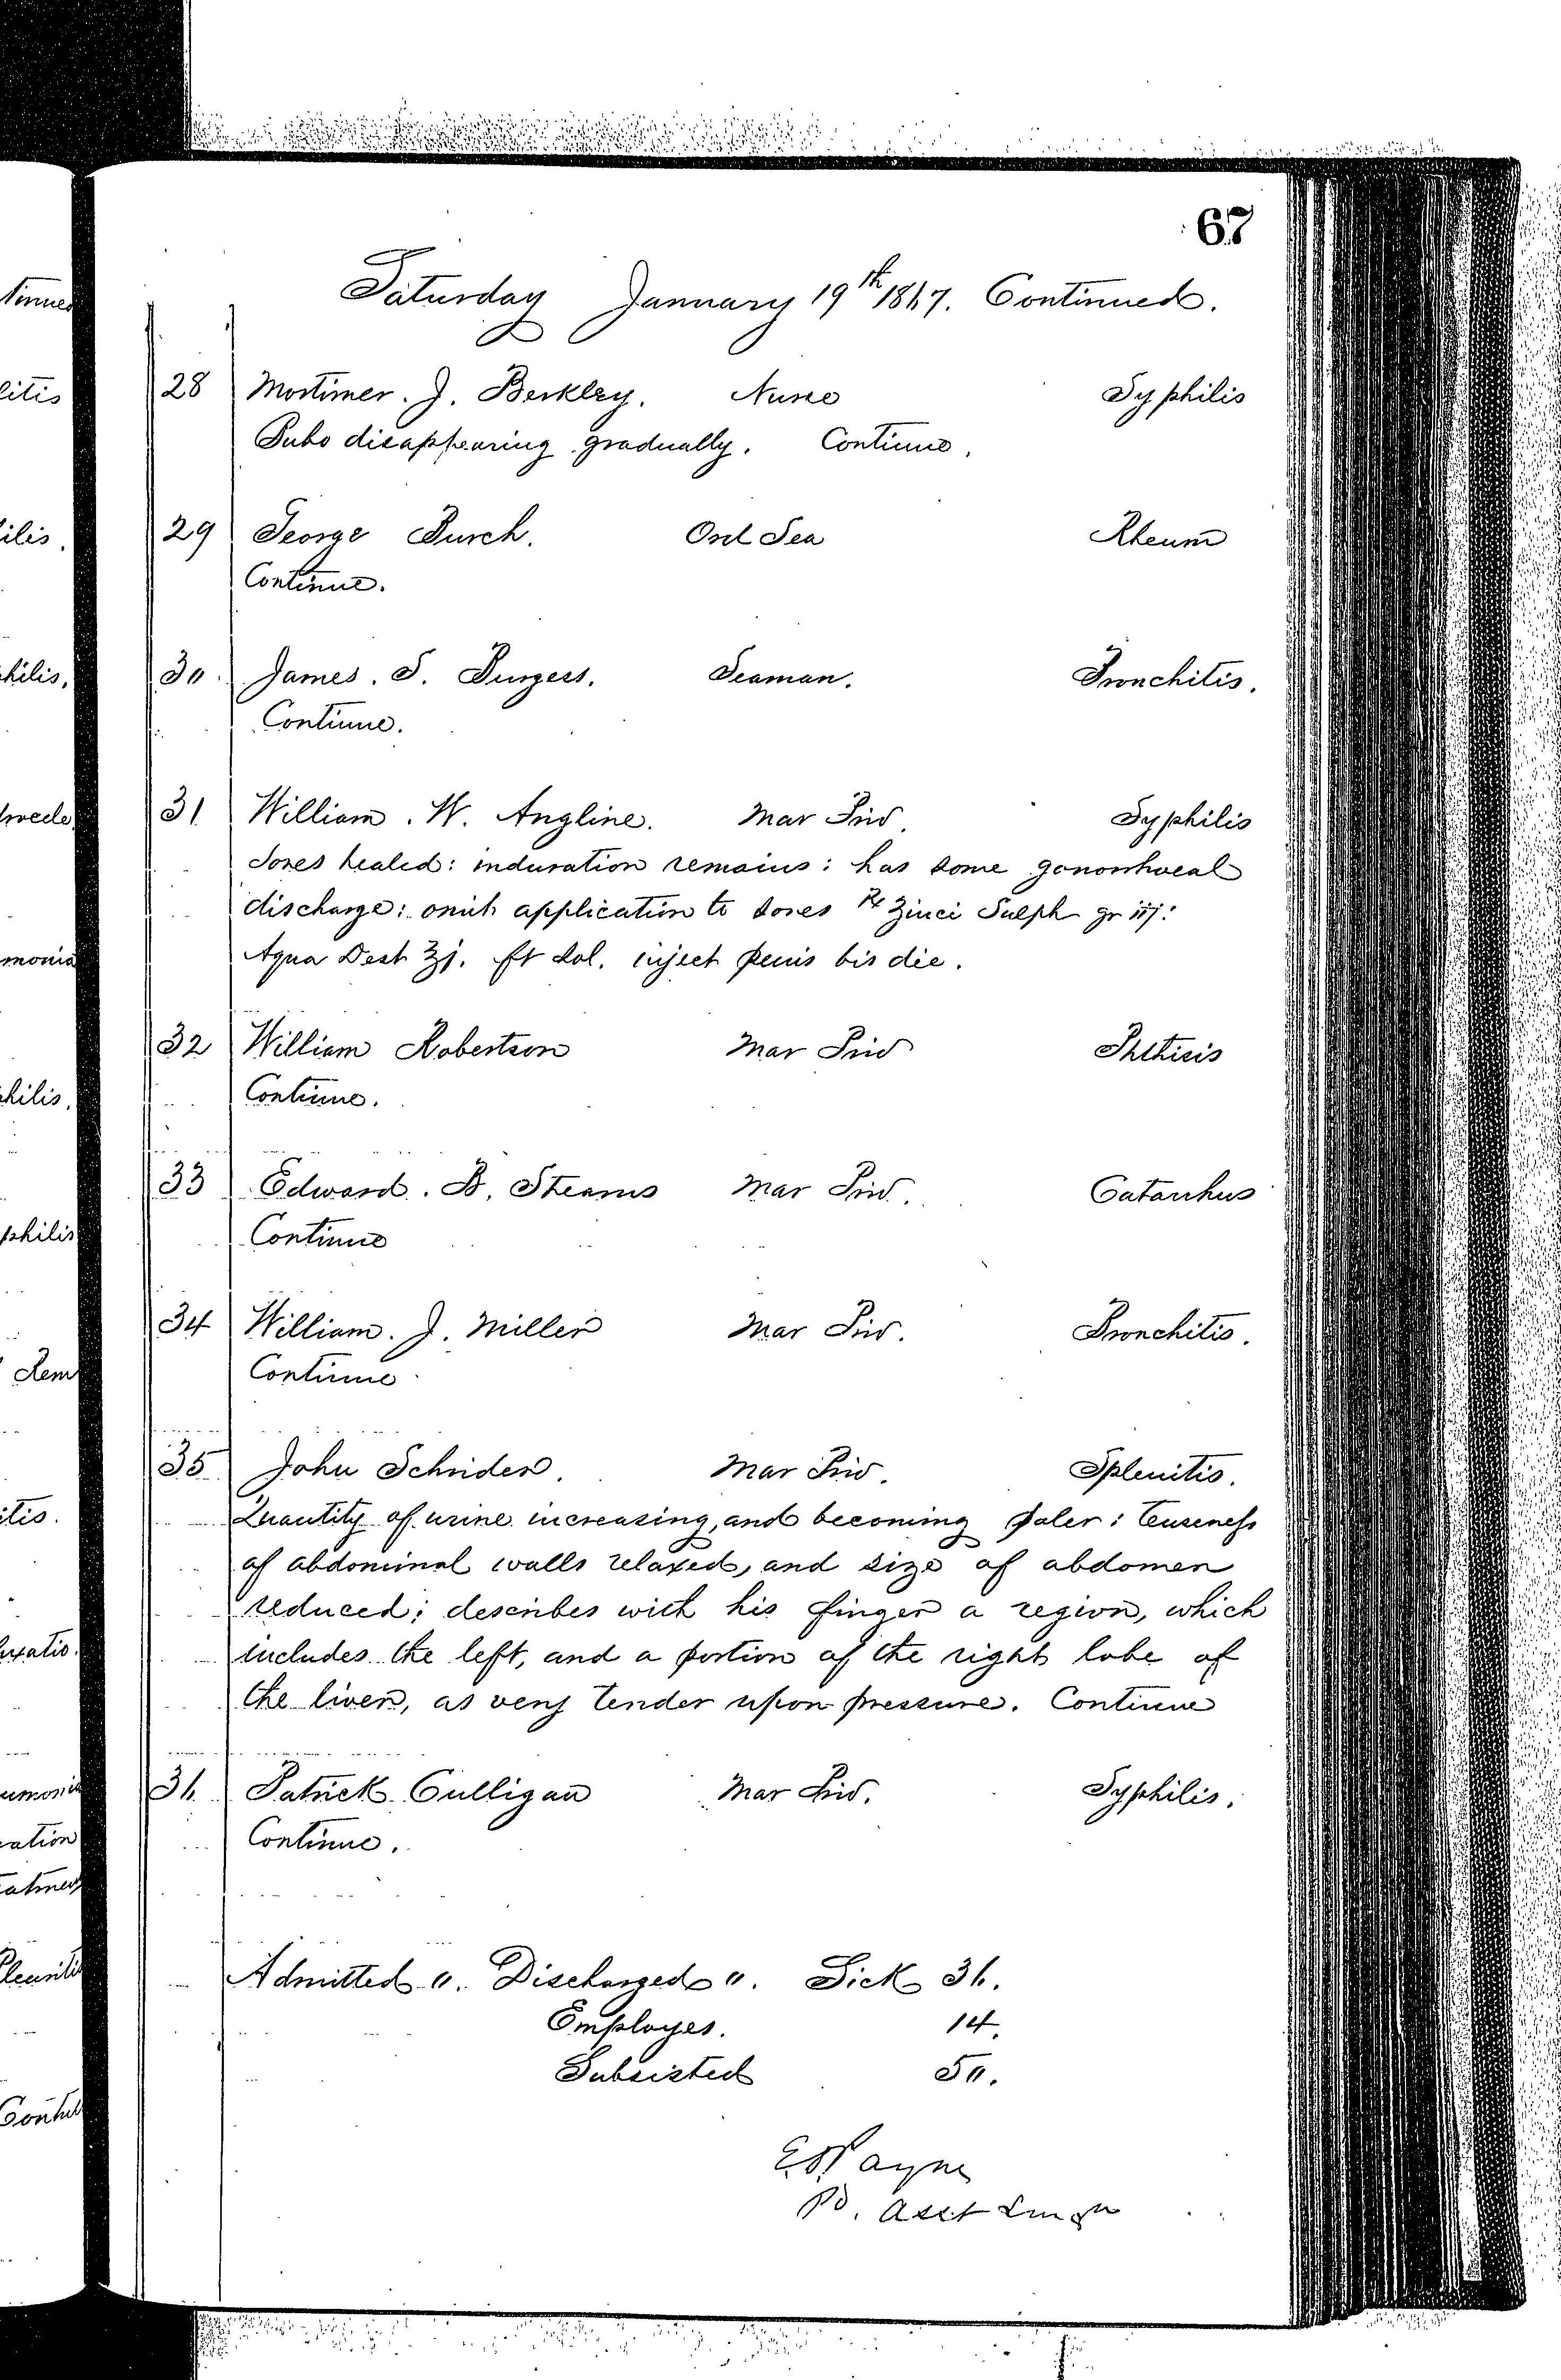 67
Saturday January 19th 1867. Continued.
28 Mortimer. J. Berkley. Nurse Syphilis
Bubo disappearing gradually. Continue.
29 George Burch. Ord Sea Rheum
Continue.
30 James. S. Burgess. Seaman. Bronchitis.
Continue.
31 William. W. Angline. Mar Priv. Syphilis
Sores healed: induration remains: has some gonorrhoeal
discharge: omit application to sores ℞ Zinci Sulph gr iij:
Aqua Dest ℥j. ft sol. inject penis bis die.
32 William Robertson Mar Priv Phthisis
Continue.
33 Edward. B. Stearns Mar Priv. Catarrhus
Continue
34 William. J. Miller Mar Priv. Bronchitis.
Continue
35 John Schrider. Mar Priv. Splenitis.
Quantity of urine increasing, and becoming paler: tenseness
of abdominal walls relaxed, and size of abdomen
reduced; describes with his finger a region, which
includes the left, and a portion of the right lobe of
the liver, as very tender upon pressure. Continue
36 Patrick Culligan Mar Priv. Syphilis.
Continue.
Admitted 0. Discharged 0. Sick 36.
Employes. 14.
Subsisted 50.
Payne
Asst Surgn